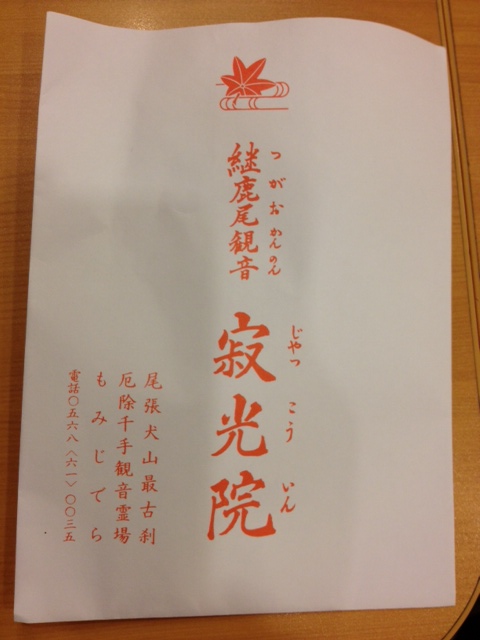 つがおかんのん
継鹿尾観音
じゃっこういん
寂光院
尾張犬山最古刹
厄除千手観音霊場
もみじでら
電話〇五六八〈六一〉〇〇三五